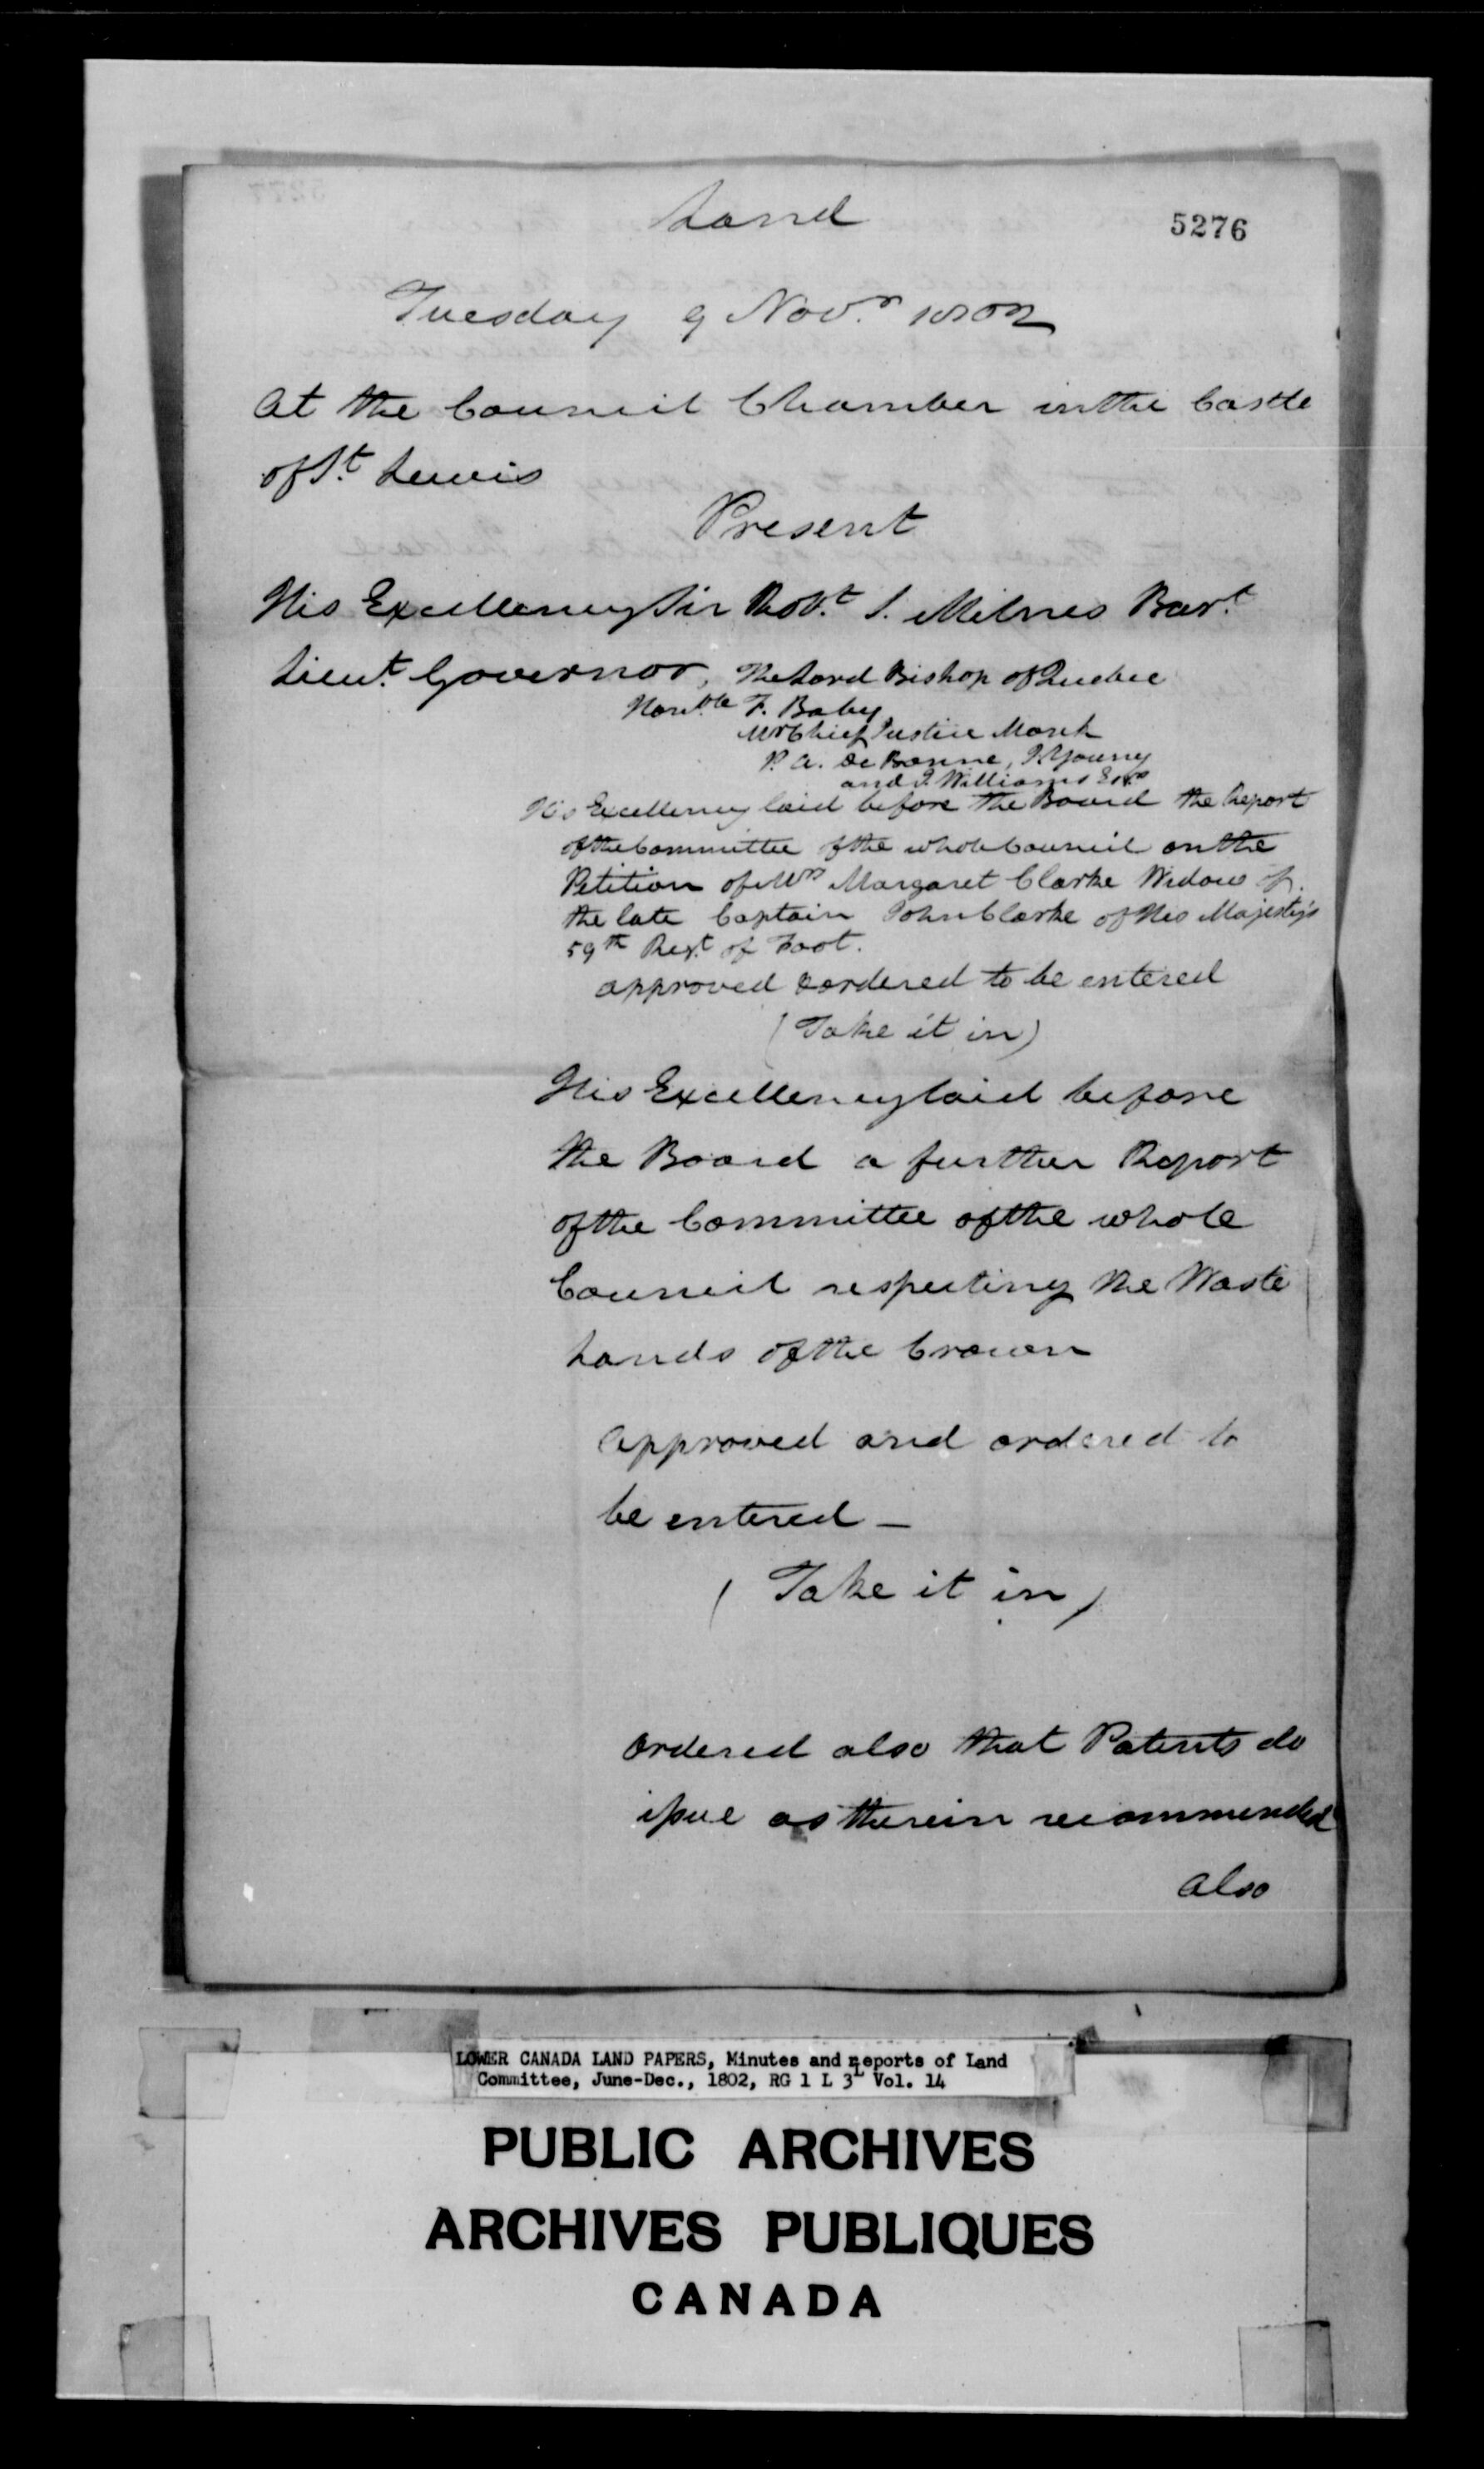 Land
5276
Tuesday 9 Novr. 1802
At the Council Chamber in the Castle
of St. Lewis
Present
His Excellency Sir Robt. S. Milnes Bart.
Lieut. Governor, The Lord Bishop of Quebec
Honble F. Baby
Mr Chief Justice Monk
P. A. De Bonne, J. Young
and J. Williams Esqrs
His Excellency laid before the Board the Report
of the Committee of the whole Council on the
Petition of Mrs Margaret Clarke Widow of
the late Captain John Clarke of His Majesty's
59th Regt. of Foot.
approved & ordered to be entered
(Take it in)
His Excellency laid before
the Board a further Report
of the Committee of the whole
Council respecting the Waste
Lands of the Crown
Approved and ordered to
be entered —
(Take it in)
Ordered also that Patents do
issue as therein recommended
Also
LOWER CANADA LAND PAPERS, Minutes and Reports of Land
Committee, June-Dec., 1802, RG 1 L 3L Vol. 14
PUBLIC ARCHIVES
ARCHIVES PUBLIQUES
CANADA